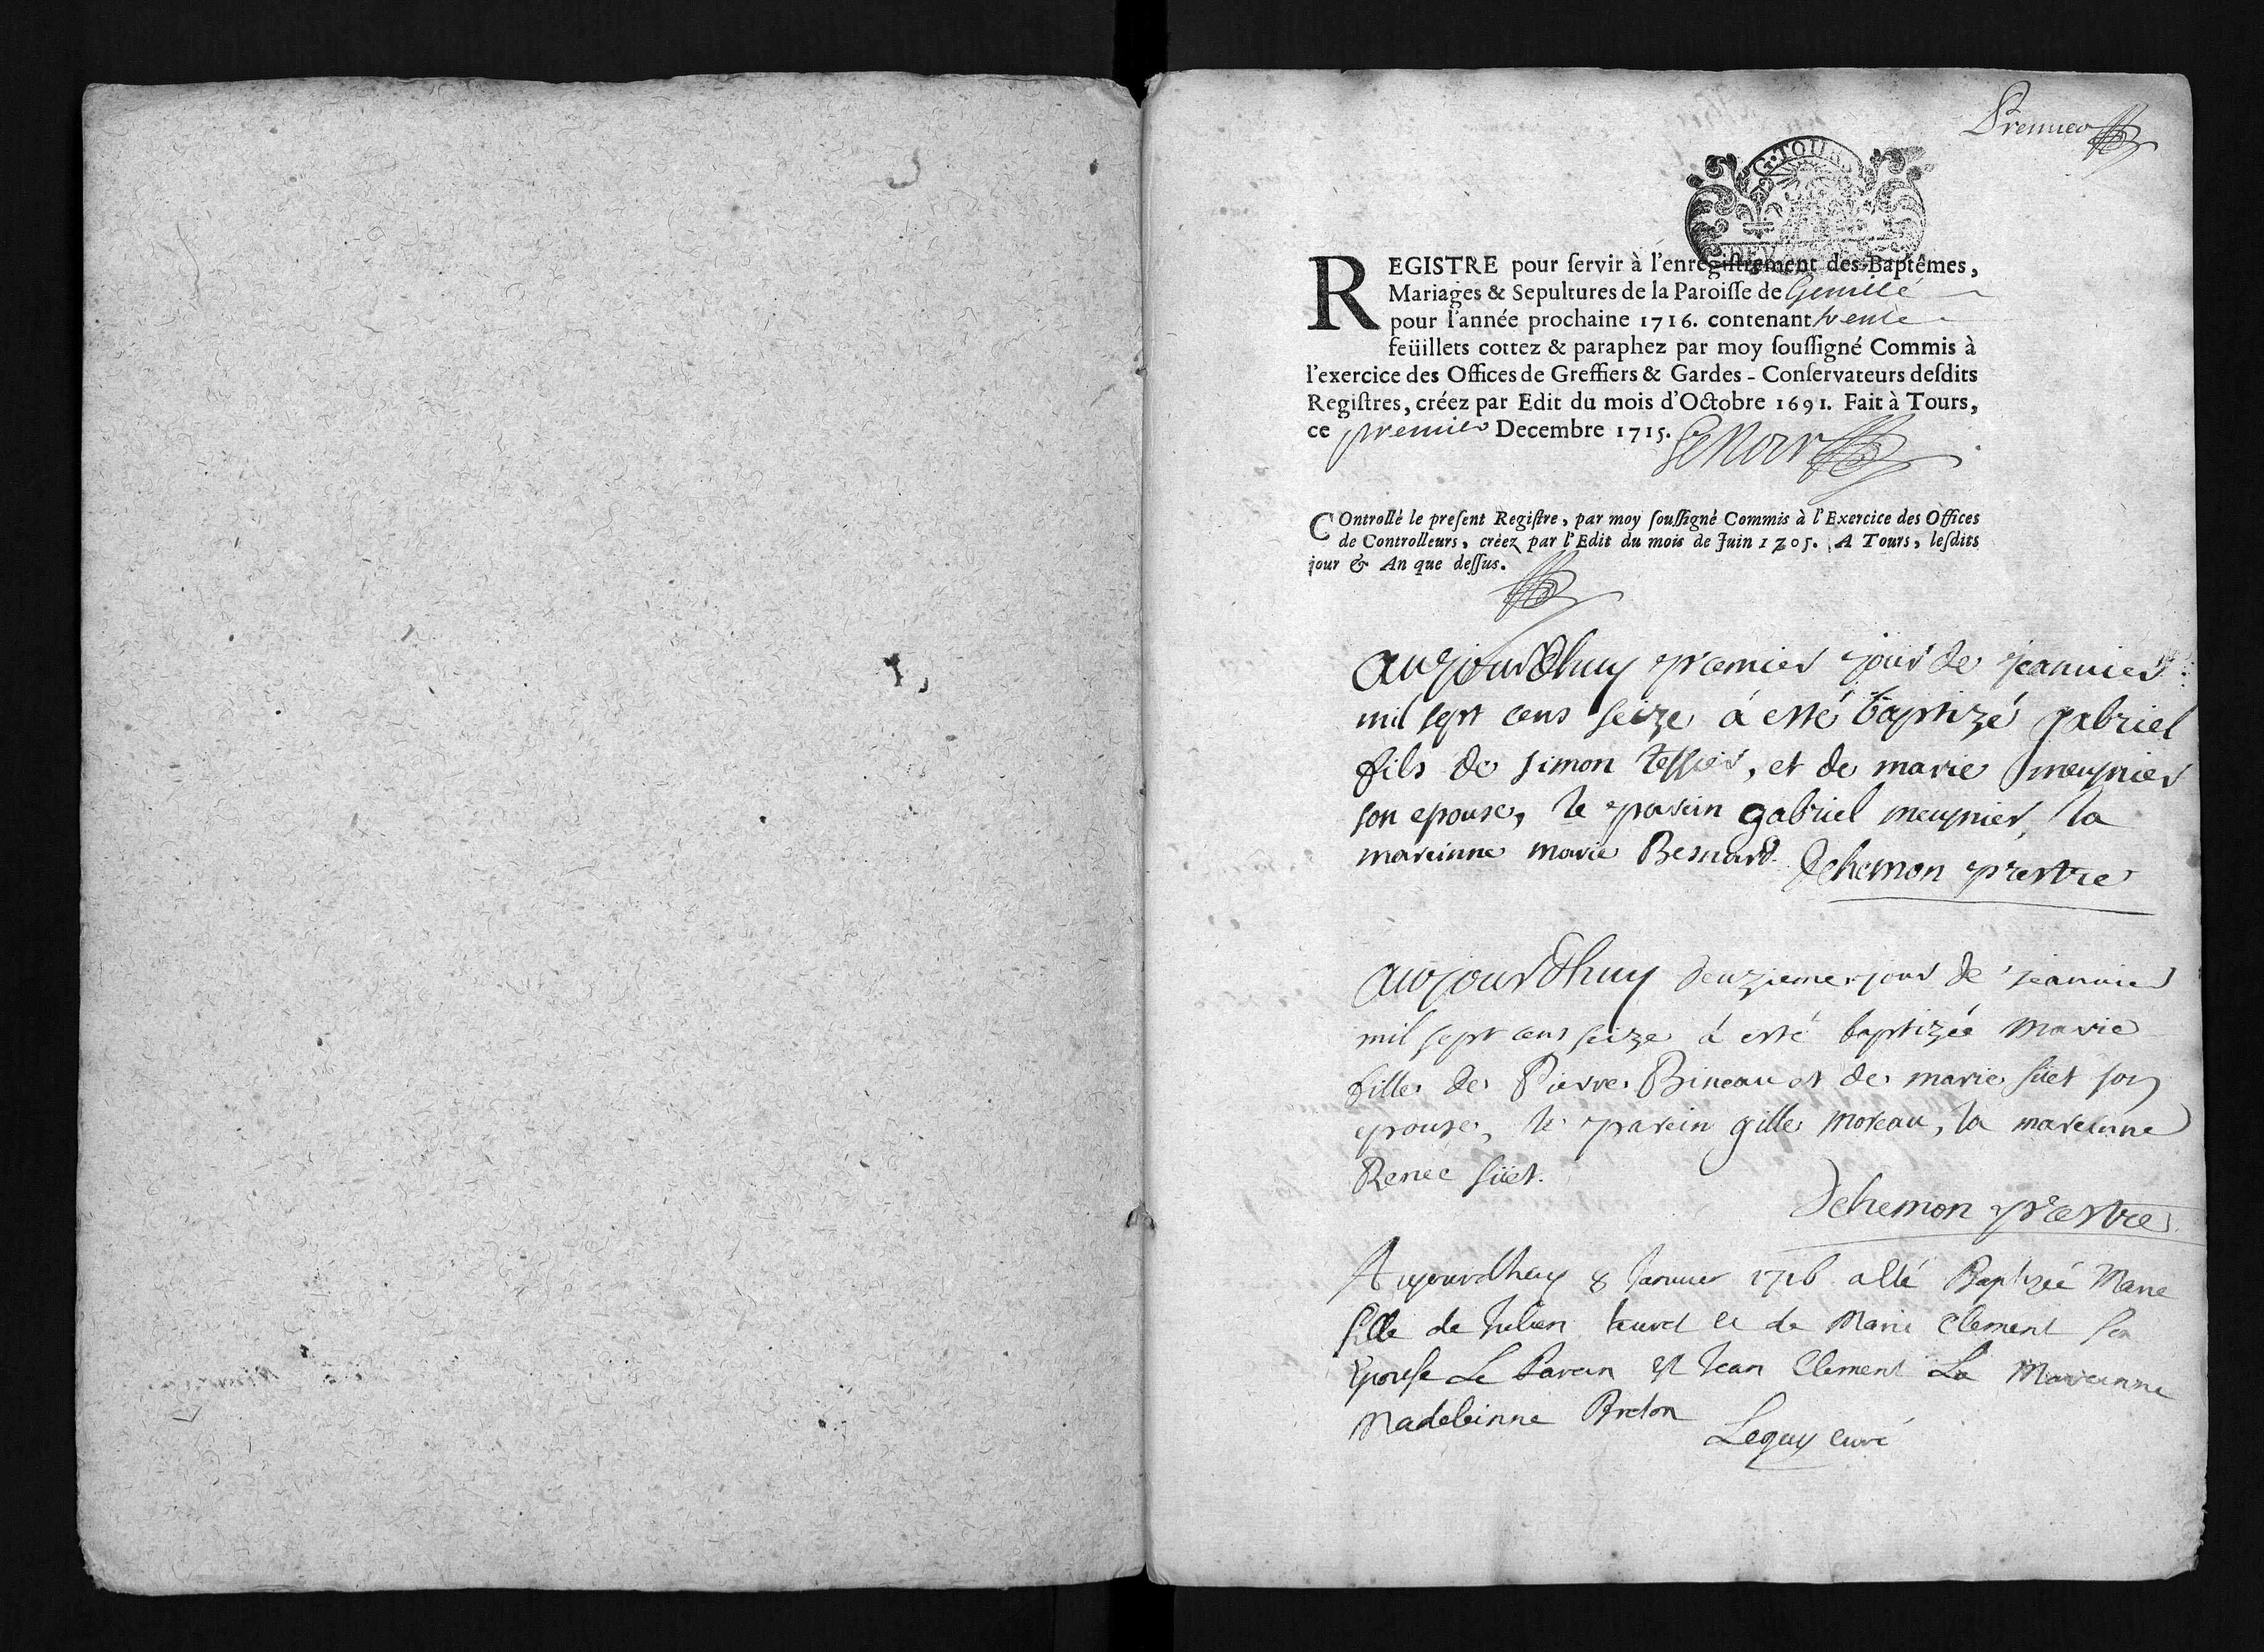 Premier
G. TOURS
REGISTRE pour servir à l'enregistrement des Baptêmes,
Mariages & Sepultures de la Paroisse de Genillé
pour l'année prochaine 1716. contenant trente
feüillets cottez & paraphez par moy soussigné Commis à
l'exercice des Offices de Greffiers & Gardes-Conservateurs desdits
Registres, créez par Edit du mois d'Octobre 1691. Fait à Tours,
ce premier Decembre 1715.
COntrollé le present Registre, par moy soussigné Commis à l'Exercice des Offices
de Controlleurs, créez par l'Edit du mois de Juin 1705. A Tours, lesdits
jour & An que dessus.
aujourdhuy premier jour de jeanvier
mil sept cens seize á esté baptizé gabriel
fils de simon tessier, et de marie meusnier
son epouse, le parein gabriel meusnier, la
mareinne marie Besnard. Dehemon prestre
aujourdhuy deuzieme jour de jeanvier
mil sept cens seize á esté baptizée marie
fille de Pierre Bineau et de marie süet son
epouse, le parein gille moreau, la mareinne
Renée süet.
Dehemon prestre
Aujourdhuy 8 Janvier 1716 a esté Baptizée Marie
fille de Julien et de Marie Clement son
Epouse Le Parein est Jean Clement La Mareinne
Madeleinne Breton
Leguay curé